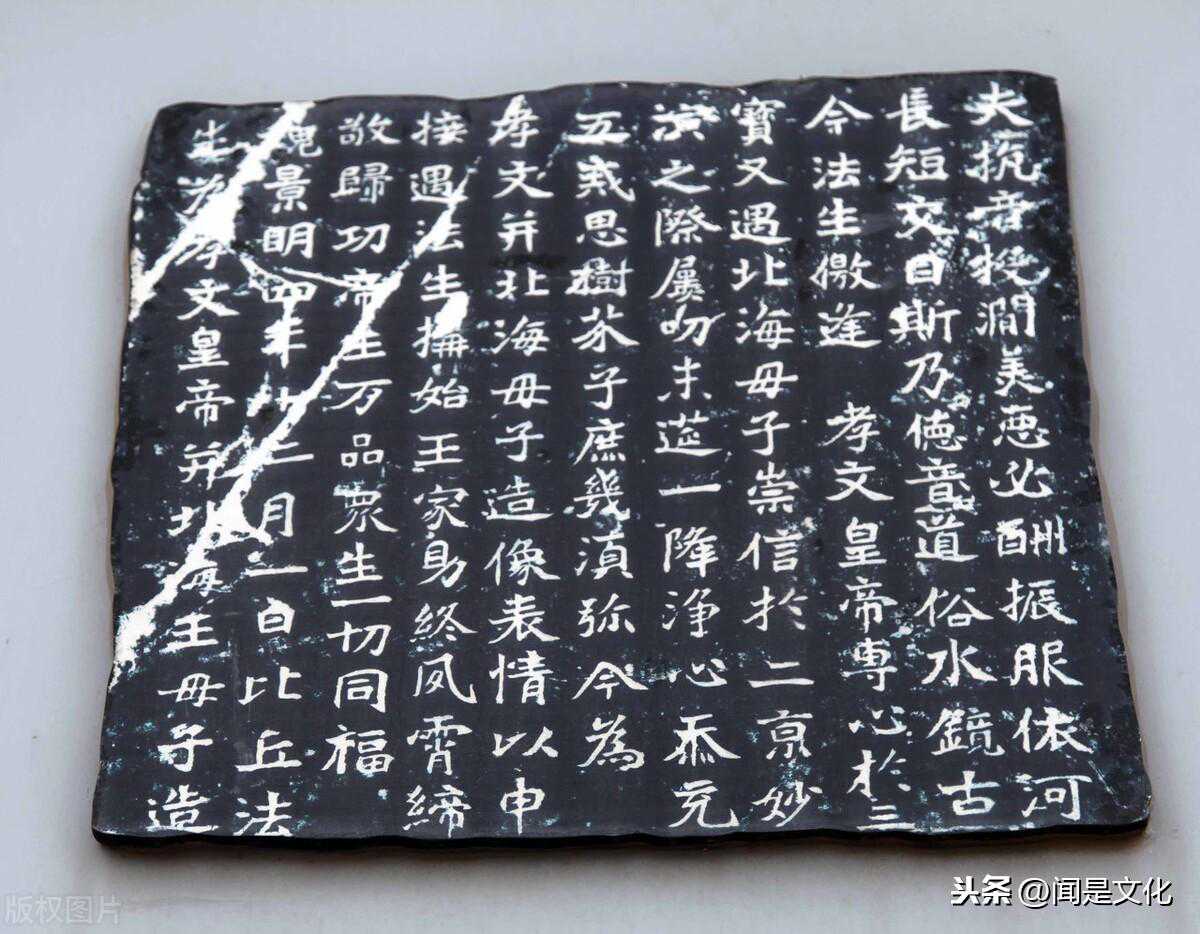 夫抗音投澗美惡必酬振服依河
長短交目斯乃徳音道俗水鏡古
今法生儌逢 孝文皇帝專心於三
寶又遇北海母子崇信於二京妙
演之際屢叨末筵一降淨心忝充
五戒思樹芥子庶幾須弥今為
孝文并北海母子造像表情以申
接遇法生構始王家助終夙霄締
敬歸功帝王万品眾生一切同福
魏景明四年十二月一日比丘法
生為孝文皇帝并北海王母子造
版权图片
头条 @闻是文化